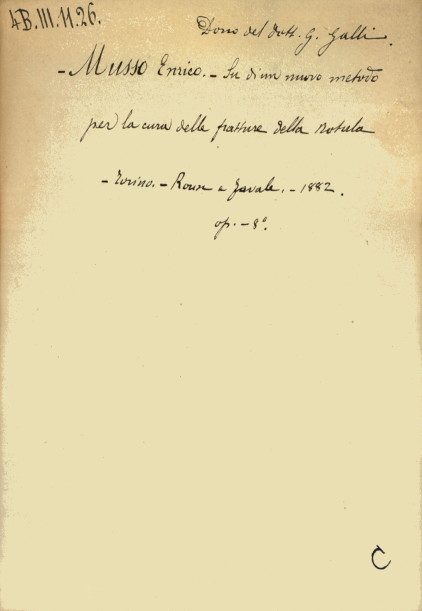 4B.III.11.26.
Dono del dott. G. Galli.
- Musso Enrico. - Su di un nuovo metodo
per la cura delle fratture della rotula
- Torino. - Roux e Favale. - 1882.
op. - 8°.
C